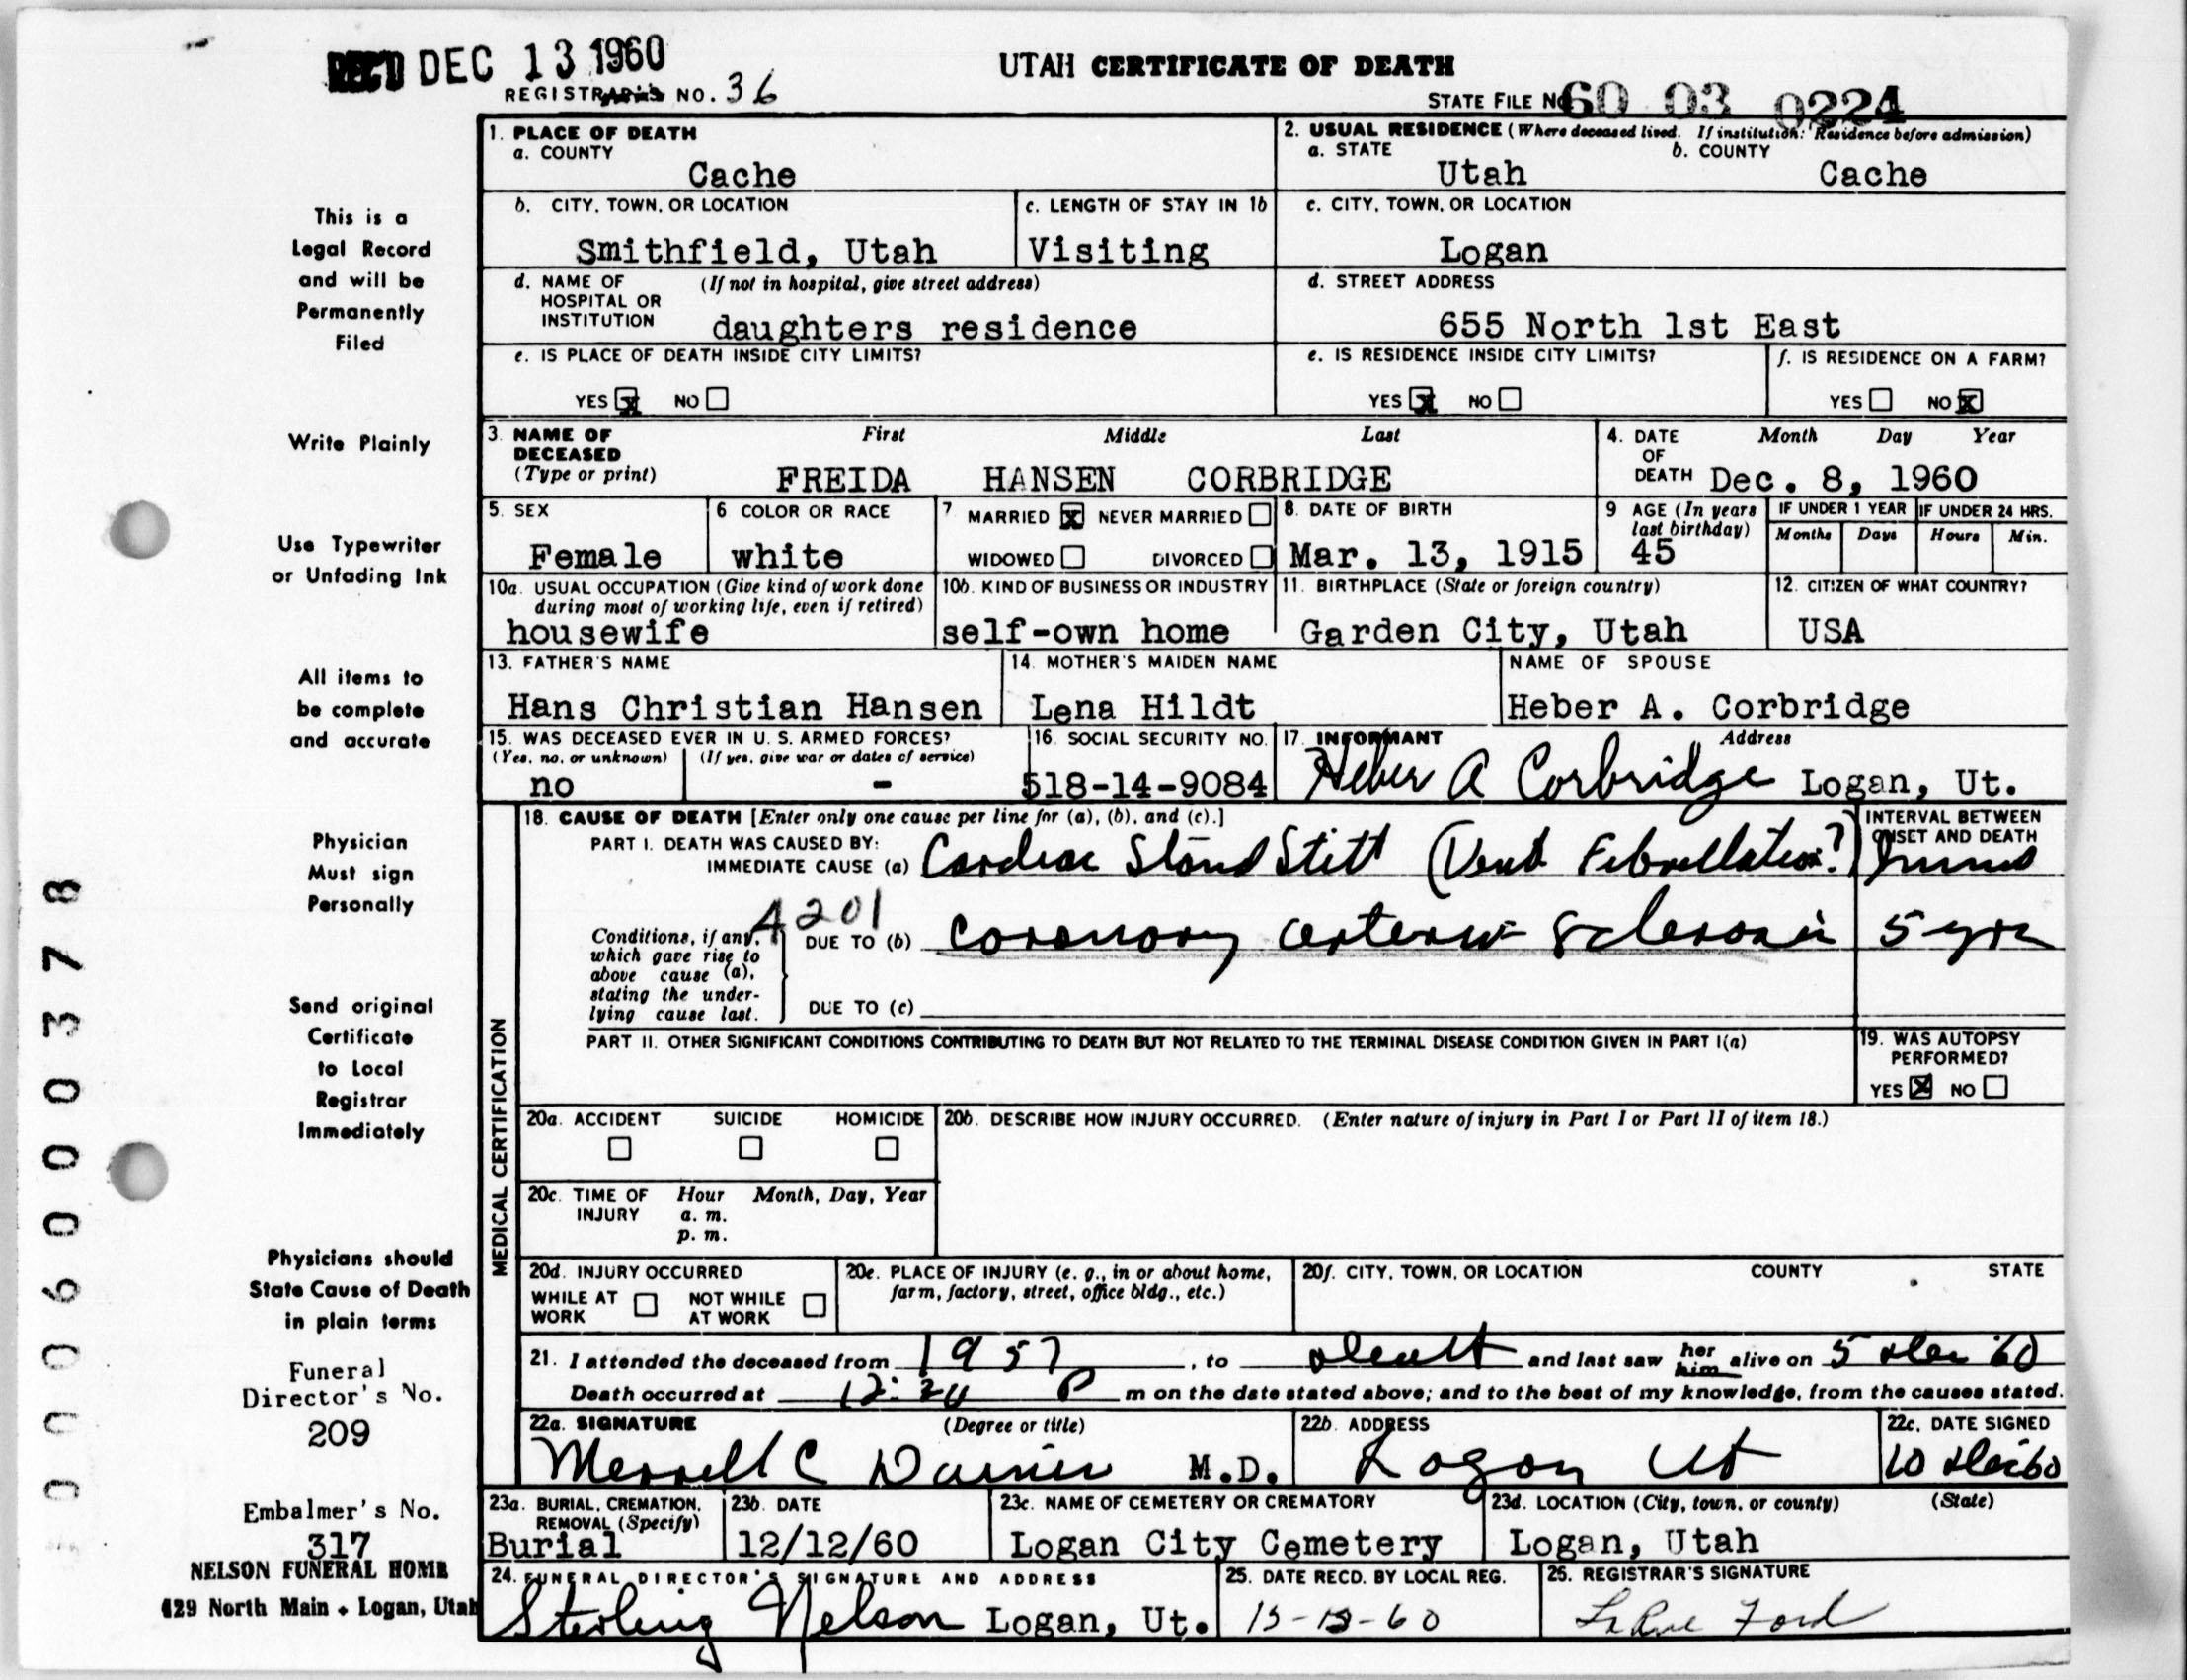 REC'D DEC 13 1960
UTAH CERTIFICATE OF DEATH
REGISTRAR'S NO. 36
STATE FILE NO 60 03 0224
1. PLACE OF DEATH
a. COUNTY
Cache
2. USUAL RESIDENCE (Where deceased lived. If institution: Residence before admission)
a. STATE b. COUNTY
Utah Cache
b. CITY, TOWN, OR LOCATION
Smithfield, Utah
c. LENGTH OF STAY IN 1b
Visiting
c. CITY, TOWN, OR LOCATION
Logan
d. NAME OF HOSPITAL OR INSTITUTION (If not in hospital, give street address)
daughters residence
d. STREET ADDRESS
655 North 1st East
e. IS PLACE OF DEATH INSIDE CITY LIMITS?
YES x NO
e. IS RESIDENCE INSIDE CITY LIMITS?
YES x NO
f. IS RESIDENCE ON A FARM?
YES NO x
3. NAME OF DECEASED (Type or print)
First Middle Last
FREIDA HANSEN CORBRIDGE
4. DATE OF DEATH
Month Day Year
Dec. 8, 1960
5. SEX
Female
6 COLOR OR RACE
white
7 MARRIED x NEVER MARRIED
WIDOWED DIVORCED
8. DATE OF BIRTH
Mar. 13, 1915
9 AGE (In years last birthday)
45
IF UNDER 1 YEAR
Months Days
IF UNDER 24 HRS.
Hours Min.
10a. USUAL OCCUPATION (Give kind of work done during most of working life, even if retired)
housewife
10b. KIND OF BUSINESS OR INDUSTRY
self-own home
11. BIRTHPLACE (State or foreign country)
Garden City, Utah
12. CITIZEN OF WHAT COUNTRY?
USA
13. FATHER'S NAME
Hans Christian Hansen
14. MOTHER'S MAIDEN NAME
Lena Hildt
NAME OF SPOUSE
Heber A. Corbridge
15. WAS DECEASED EVER IN U. S. ARMED FORCES?
(Yes, no, or unknown) (If yes, give war or dates of service)
no -
16. SOCIAL SECURITY NO.
518-14-9084
17. INFORMANT Address
Heber A Corbridge Logan, Ut.
MEDICAL CERTIFICATION
18. CAUSE OF DEATH [Enter only one cause per line for (a), (b), and (c).]
PART I. DEATH WAS CAUSED BY:
IMMEDIATE CAUSE (a) Cardiac Stand Still (Vent Fibrillation?)
INTERVAL BETWEEN ONSET AND DEATH
4201
Conditions, if any, which gave rise to above cause (a), stating the underlying cause last.
DUE TO (b) coronary arterio sclerosis 5 yrs
DUE TO (c)
PART II. OTHER SIGNIFICANT CONDITIONS CONTRIBUTING TO DEATH BUT NOT RELATED TO THE TERMINAL DISEASE CONDITION GIVEN IN PART I(a)
19. WAS AUTOPSY PERFORMED?
YES x NO
20a. ACCIDENT SUICIDE HOMICIDE
20b. DESCRIBE HOW INJURY OCCURRED. (Enter nature of injury in Part I or Part II of item 18.)
20c. TIME OF INJURY Hour Month, Day, Year
a. m.
p. m.
20d. INJURY OCCURRED
WHILE AT WORK NOT WHILE AT WORK
20e. PLACE OF INJURY (e. g., in or about home, farm, factory, street, office bldg., etc.)
20f. CITY, TOWN, OR LOCATION COUNTY STATE
21. I attended the deceased from 1957, to death and last saw her him alive on 5 Dec 60
Death occurred at 12:20 P m on the date stated above; and to the best of my knowledge, from the causes stated.
22a. SIGNATURE (Degree or title)
Merrell C M.D.
22b. ADDRESS
Logan Ut
22c. DATE SIGNED
10 Dec 60
23a. BURIAL, CREMATION, REMOVAL (Specify)
Burial
23b. DATE
12/12/60
23c. NAME OF CEMETERY OR CREMATORY
Logan City Cemetery
23d. LOCATION (City, town, or county) (State)
Logan, Utah
24. FUNERAL DIRECTOR'S SIGNATURE AND ADDRESS
Sterling Nelson Logan, Ut.
25. DATE RECD. BY LOCAL REG.
26. REGISTRAR'S SIGNATURE
LaRue Ford
This is a
Legal Record
and will be
Permanently
Filed
Write Plainly
Use Typewriter
or Unfading Ink
All items to
be complete
and accurate
Physician
Must sign
Personally
Send original
Certificate
to Local
Registrar
Immediately
Physicians should
State Cause of Death
in plain terms
Funeral
Director's No.
209
Embalmer's No.
317
NELSON FUNERAL HOME
429 North Main • Logan, Utah
0006000378